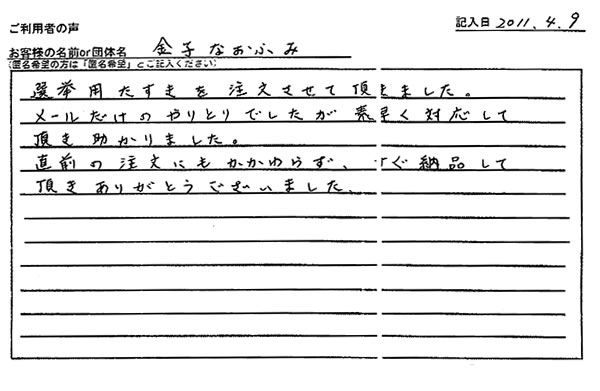 ご利用者の声
記入日 2011.4.9
お客様の名前or団体名 金子なおふみ
(匿名希望の方は「匿名希望」とご記入ください)
選挙用たすきを注文させて頂きました。
メールだけのやりとりでしたが素早く対応して
頂き助かりました。
直前の注文にもかかわらず、すぐ納品して
頂きありがとうございました。